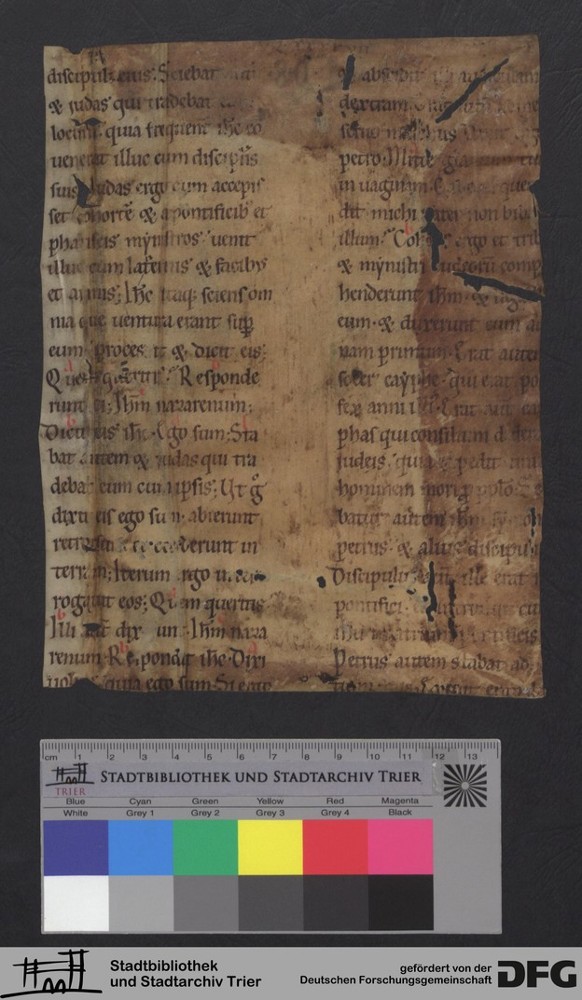 discipuli eius. Sciebat
& iudas qui tradebat
locum quia frequent̄ ih̄c co
uenerat illuc cum discip̄lis
suis iudas ergo cum accepis
set cohortē & a pontificib; et
phariseis mynistros uenit
illuc cum laternis & facib;
et armis; Ih̄c itaq; sciens om
nia que uentura erant sup̄
eum. processit & dicit eis;
Quē q̄ritis. Responde
runt ei; Ih̄m nazarenum;
Dicit eis ih̄c. Ego sum. Sta
bat autem & iudas qui tra
debat eum cum ipsis; Ut g̊
dixit eis ego sum. abierunt
retrorsum & ceciderunt in
terram; Iterum ergo
rogauit eos; Quem queritis
Illi aut̄ dixerunt. Ih̄m naza
renum. Respondit ih̄c. Dixi
uobis quia ego sum. Si ergo
& abscidit
dextram
seruo malchus
petro. Mitte gladium
in uaginam. que
dit michi pater non biba
illum. Cohors ergo et trib
& mynistri iudeorū comp
henderunt ih̄m. & liga
eum. & duxerunt eum
nam primum. Erat autem
socer cayphe. qui erat po
fex anni
phas qui consilium
iudeis. quia expedit
hominem mori p̄ pop̄lo. S
batur autem ih̄m
petrus. & alius discipu
Discipulus ille erat
pontifici.
ih̄u in atrium pontificis
Petrus autem stabat ad
cm 1 2 3 4 5 6 7 8 9 10 11 12 13
TRIER
STADTBIBLIOTHEK UND STADTARCHIV TRIER
Blue Cyan Green Yellow Red Magenta
White Grey 1 Grey 2 Grey 3 Grey 4 Black
Stadtbibliothek
und Stadtarchiv Trier
gefördert von der
Deutschen Forschungsgemeinschaft
DFG